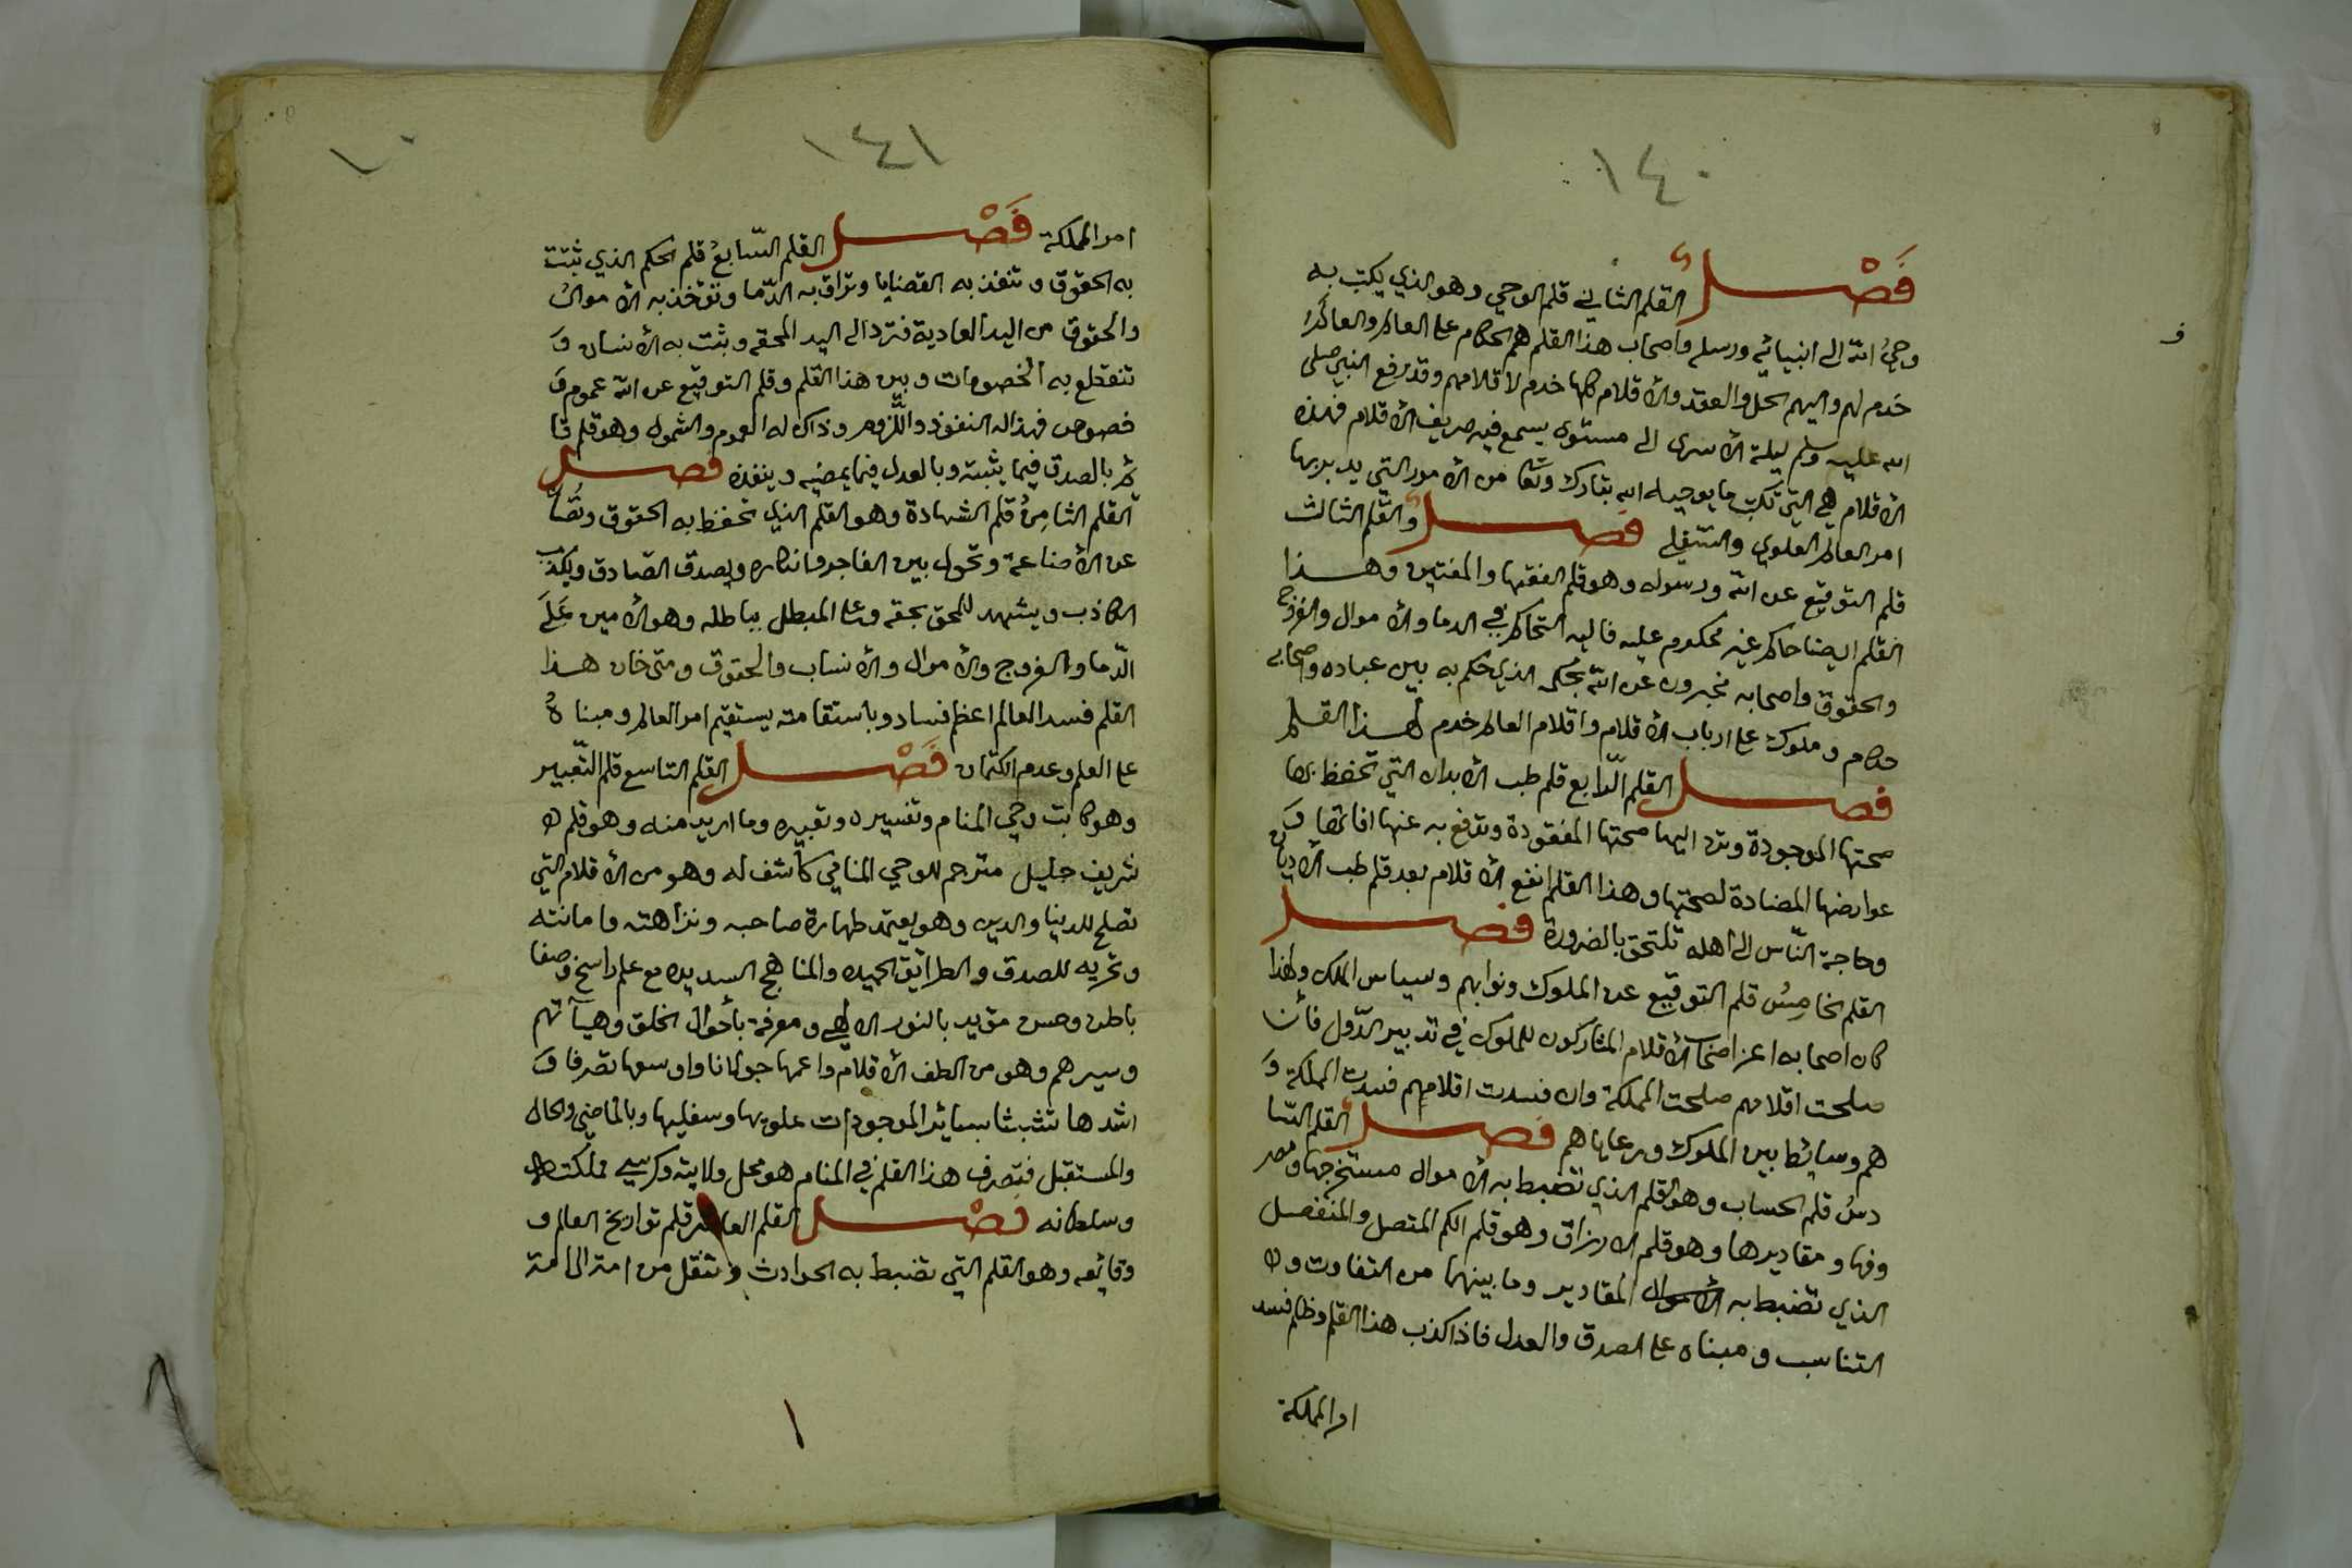 ١٤٠
فَصْل القلم الثاني قلم الوحي وهو الذي يكتب به
وحيُ الله الى انبيائه ورسله واصحاب هذا القلم هم الحكام على العالم والعالم
خدم لهم واليهم الحل والعقد والاقلام كلها خدم لاقلامهم وقد رفع النبي صلى
الله عليه وسلم ليلة الاسرى الى مستوى يسمع فيه صريف الاقلام فهذه
الاقلام هي التي تكتب ما يوحيه الله تبارك وتعا من الامور التي يدبر بها
امر العالم العلوي والسّفلي فصل والقلم الثالث
قلم التوقيع عن الله ورسوله وهو قلم الفقها والمفتين وهذا
القلم ايضا حاكم غير محكوم عليه فاليه التحاكم في الدما والاموال والفروج
والحقوق واصحابه مخبرون عن الله بحكمه الذي حكم به بين عباده واصحابه
حكام وملوك على ارباب الاقلام واقلام العالم خدم لهذا القلم
فصل القلم الرّابع قلم طب الابدان التي تحفظ بها
صحتها الموجودة وترد اليها صحتها المفقودة وتدفع به عنها افاتها وَ
عوارضها المضادة لصحتها وهذا القلم انفع الاقلام بعد قلم طب الاديان
وحاجة النّاس الى اهله تلتحق بالضرورة فصل
القلم الخامِسُ قلم التوقيع عن الملوك ونوابهم وسياس الملك ولهذا
كان اصحابه اعز اصحاب الاقلام المشاركون للملوك في تدبير الدّول فأن
صلحت اقلامهم صلحت المملكة وان فسدت اقلامهم فسدت المملكة وَ
هم وسائط بين الملوك ورعاياهم فصل القلم السّا
دسُ قلم الحساب وهو القلم الذي تضبط به الاموال مستخرجها ومصر
وفها ومقاديرها وهو قلم الارزاق وهو قلم الكم المتصل والمنفصل
الذي تضبط به الاموال المقادير وما بينهما من التفاوت و
التناسب ومبناه على الصدق والعدل فاذا كذب هذا القلم وظلم فسد
امر المملكة
١٤١
١٠
امر المملكة فَصْل القلم السّابعُ قلم الحكم الذي تثبت
به الحقوق وتنفذ به القضايا وتراق به الدّما وتؤخذ به الاموالُ
والحقوق من اليد العادية فترد الى اليد المحقه ويثبت به الانسان وَ
تنقطع به الخصومات وبين هذا القلم وقلم التوقيع عن الله عموم وَ
خصوص فهذا له النفوذ واللّزوم وذاك له العموم والشمول وهو قلم قا
ئم بالصدق فيما يثبته وبالعدل فيما يمضيه وينفذه فصل
القلم الثامِنُ قلم الشهادة وهو القلم الذي تحفظ به الحقوق وتصَان
عن الاضاعة وتحول بين الفاجر وانكاره ويصدق الصّادق ويكذب
الكاذب ويشهد للمحق بحقه وعلى المبطل بباطله وهو الامين عَلَى
الدّما والفروج والاموال والانساب والحقوق ومتى خان هذا
القلم فسد العالم اعظم فساد وباستقامته يستقيم امر العالم ومبناهُ
على العلم وعدم الكتمان فَصْل القلم التاسع قلم التّعبير
وهو كاتب وحي المنام وتفسيره وتعبيره وما اريد منه وهو قلم
شريف جليل مترجم للوحي المنامي كاشف له وهو من الاقلام التي
تصلح للدنيا والدين وهو يعتمد طهارة صاحبه ونزاهته وامانته
وتحريه للصدق والطرائق الحميده والمناهج السديده مع علم راسخ وصفا
باطن وحس مؤيد بالنور الالهي ومعرفة بأحوال الخلق وهيآتهم
وسيرهم وهو من الطف الاقلام واعمها جولانا واوسعها تصرفا وَ
اشدها تشبثا بسائر الموجودات علويها وسفليها وبالماضي والحال
والمستقبل فتصرف هذا القلم في المنام هو محل ولايته وكرسي مملكته
وسلطانه فصْل القلم العاشر قلم تواريخ العالم و
وقائعه وهو القلم التي تضبط به الحوادث وتنقل من امة الى امة
١